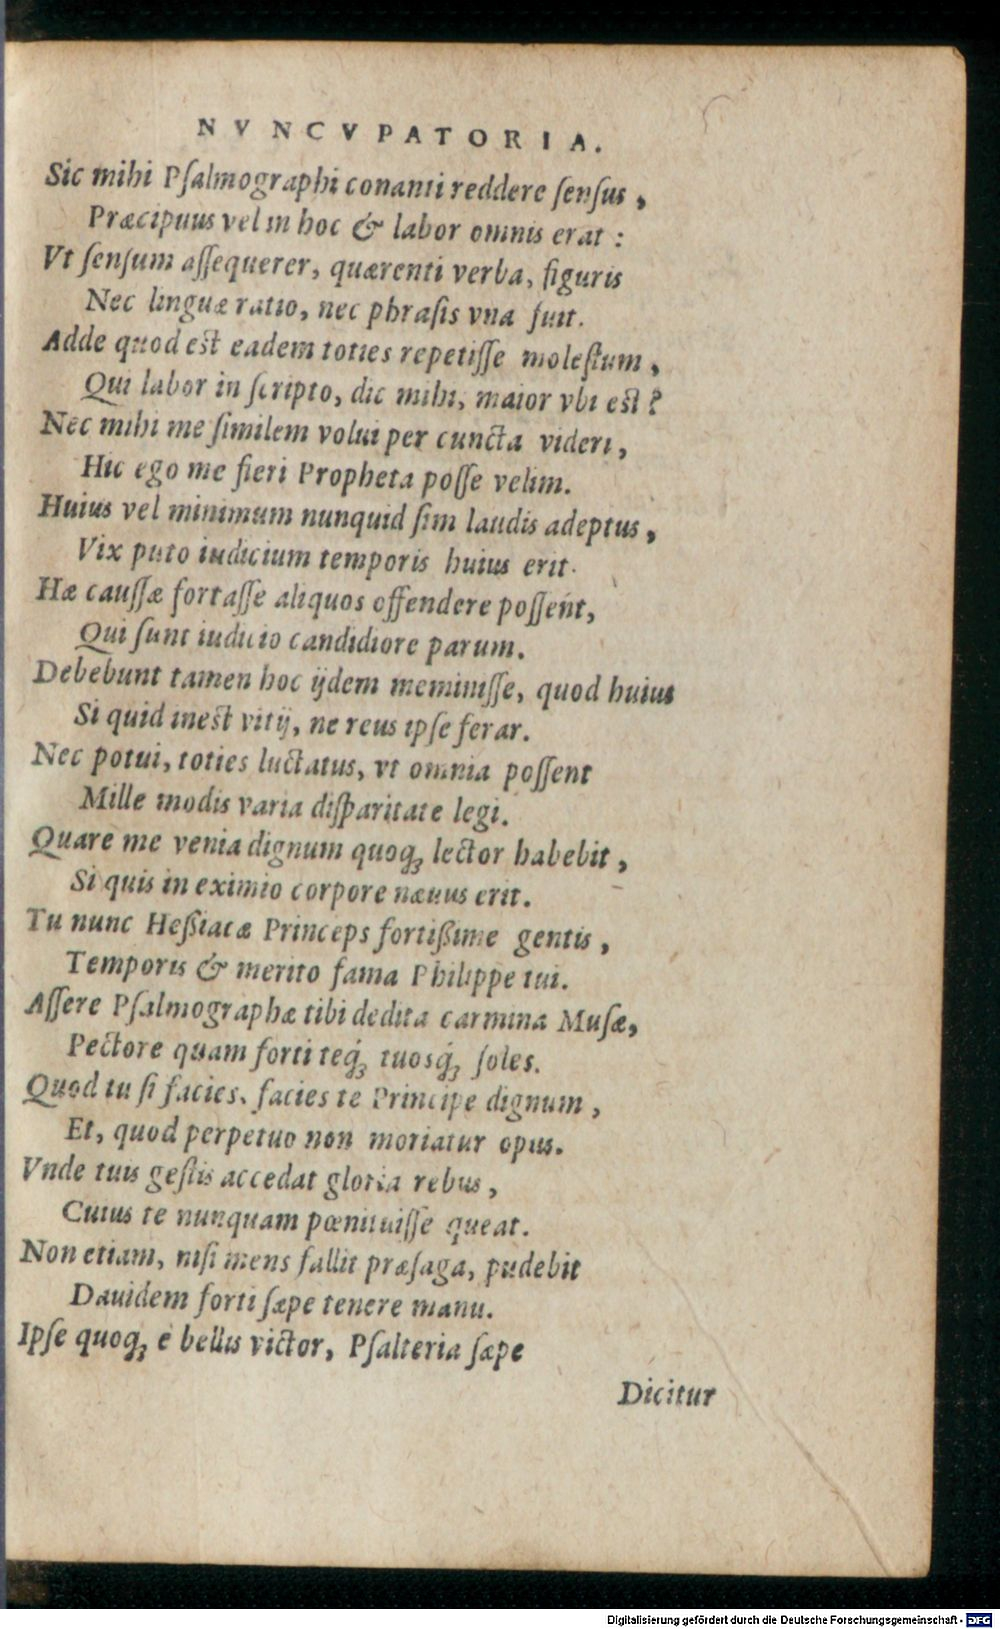 NVNCVPATORIA.
Sic mihi Pſalmographi conanti reddere ſenſus,
Præcipuus vel in hoc & labor omnis erat:
Vt ſenſum aſſequerer, quærenti verba, figuris
Nec linguæ ratio, nec phraſis vna fuit.
Adde quod est eadem toties repetiſſe moleſtum,
Qui labor in ſcripto, dic mihi, maior vbi est?
Nec mihi me ſimilem volui per cuncta videri,
Hic ego me fieri Propheta poſſe velim.
Huius vel minimum nunquid ſim laudis adeptus,
Vix puto iudicium temporis huius erit.
Hæ cauſſæ fortaſſe aliquos offendere poſſent,
Qui ſunt iudicio candidiore parum.
Debebunt tamen hoc ijdem meminiſſe, quod huius
Si quid inest vitij, ne reus ipſe ferar.
Nec potui, toties luctatus, vt omnia poſſent
Mille modis varia diſparitate legi.
Quare me venia dignum quoqꝫ lector habebit,
Si quis in eximio corpore næuus erit.
Tu nunc Heſsiacæ Princeps fortißime gentis,
Temporis & merito fama Philippe tui.
Aſſere Pſalmographæ tibi dedita carmina Muſæ,
Pectore quam forti teqꝫ́ tuosqꝫ́ ſoles.
Quod tu ſi facies, facies te Principe dignum,
Et, quod perpetuo non moriatur opus.
Vnde tuis geſtis accedat gloria rebus,
Cuius te nunquam pœnituiſſe queat.
Non etiam, niſi mens fallit præſaga, pudebit
Dauidem forti ſæpe tenere manu.
Ipſe quoqꝫ è bellis victor, Pſalteria ſæpe
Dicitur
Digitalisierung gefördert durch die Deutsche Forschungsgemeinschaft - DFG